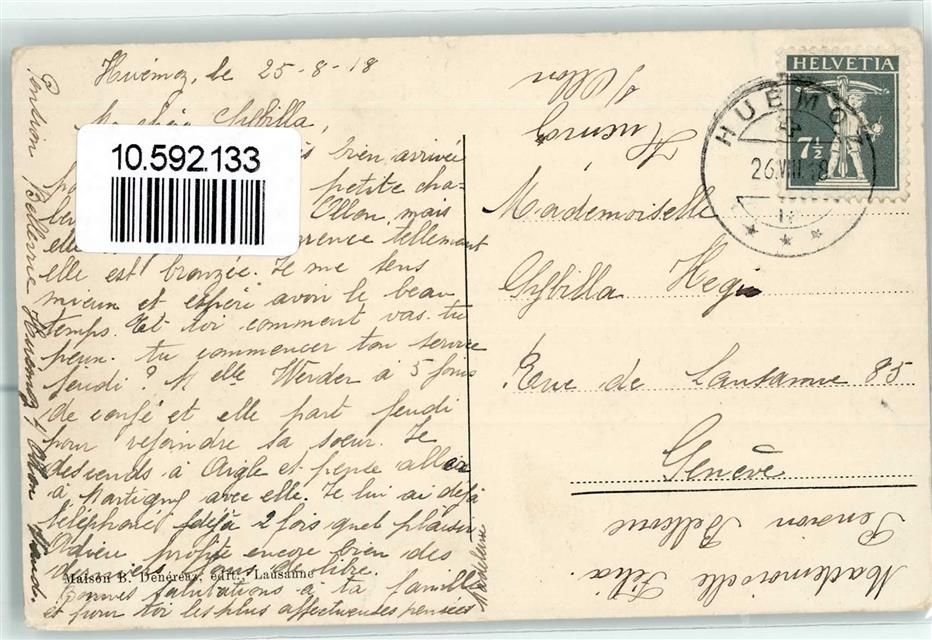 Huémoz, le 25-8-18
Ma chère Sybilla,
10.592.133
bien arrivée
petite cha-
Ollon, mais
elle tellement
elle est bronzée. Je me sens
mieux et espère avoir le beau
temps. Et toi comment vas-tu
peux-tu commencer ton service
jeudi? Melle Werder a 5 jours
de congé et elle part jeudi
pour rejoindre sa soeur. Je
descends à Aigle et pense aller
à Martigny avec elle. Je lui ai déjà
téléphoné déjà 2 fois quel plaisir
Adieu profite encore bien des
derniers jours de libre.
Bonnes salutations à ta famille
et pour toi les plus affectueuses pensées
Pension Bellevue Huémoz s/ Ollon Vaud.
Maison B. Denéréaz, édit., Lausanne
HELVETIA
7½
HUEMOZ
26.VIII.18
Mademoiselle
Sybilla Hegi
Rue de Lausanne 85
Genève
Mademoiselle
Pension Bellevue
Huémoz
s/ Ollon